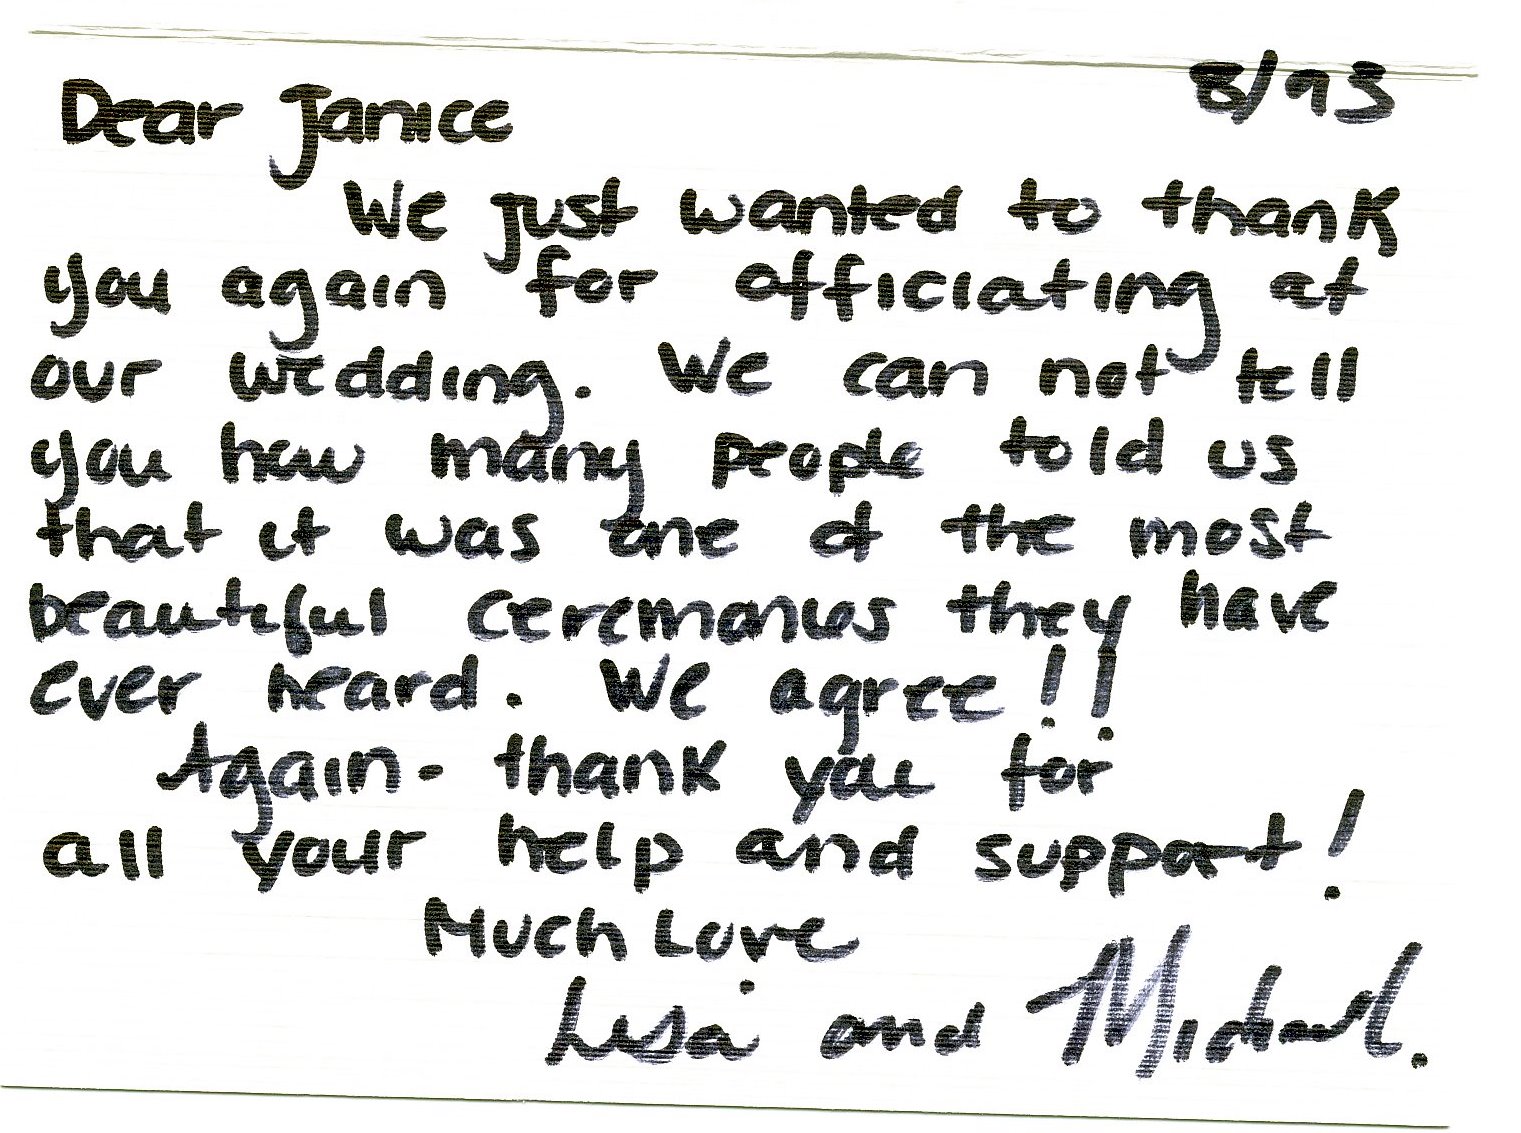 8/93
Dear Janice
We just wanted to thank
you again for officiating at
our wedding. We can not tell
you how many people told us
that it was one of the most
beautiful ceremonies they have
ever heard. We agree!!
Again - thank you for
all your help and support!
Much Love
Lisa and Michael.